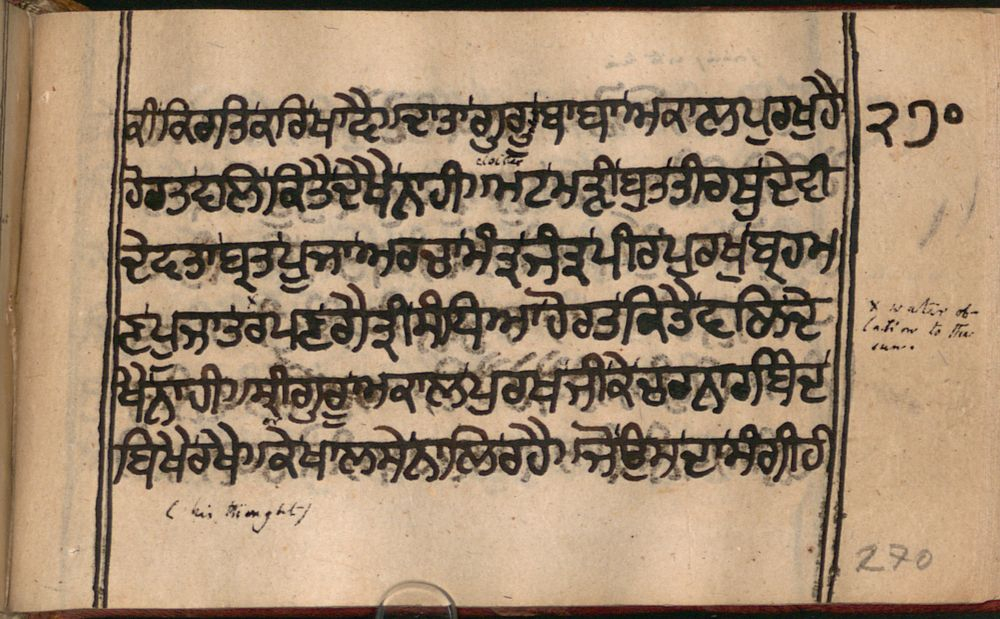 ਕੀ ਕਿਰਤਿ ਕਰਿ ਖਾਦੈ। ਦਾਤਾ ਗੁਰੂ ਬਾਬਾ ਅਕਾਲ ਪੁਰਖੁ ਹੈ ੨੭੦
ਹੋਰਤ ਵਲਿ ਕਿਤੈ ਦੇਖੈ ਨਾਹੀ। ਮਟ ਮੜੀ ਬ੍ਰਤ ਤੀਰਥੁ ਦੇਵੀ
ਦੇਵਤਾ ਬ੍ਰਤ ਪੂਜਾ ਅਰਚਾ ਮੰਤ੍ਰ ਜੰਤ੍ਰ ਪੀਰ ਪੁਰਖੁ ਬ੍ਰਹਮ
ਣ ਪੂਜਾ ਤਰਪਣ ਗੈਤ੍ਰੀ ਸੰਧਿਆ ਹੋਰਤ ਕਿਤੈ ਵਲਿ ਦੇ
ਖੈ ਨਾਹੀ। ਸ੍ਰੀ ਗੁਰੂ ਅਕਾਲ ਪੁਰਖ ਜੀ ਕੇ ਚਰਨਾਰਬਿੰਦ
ਬਿਖੇ ਰਖੈ। ਕੇ ਖਾਲਸੇ ਨਾਲਿ ਰਹੈ। ਜੋ ਉਸਦਾ ਸੰਗੀ ਹੀ
x water ob-
lation to the
sun.
( his thought)
270